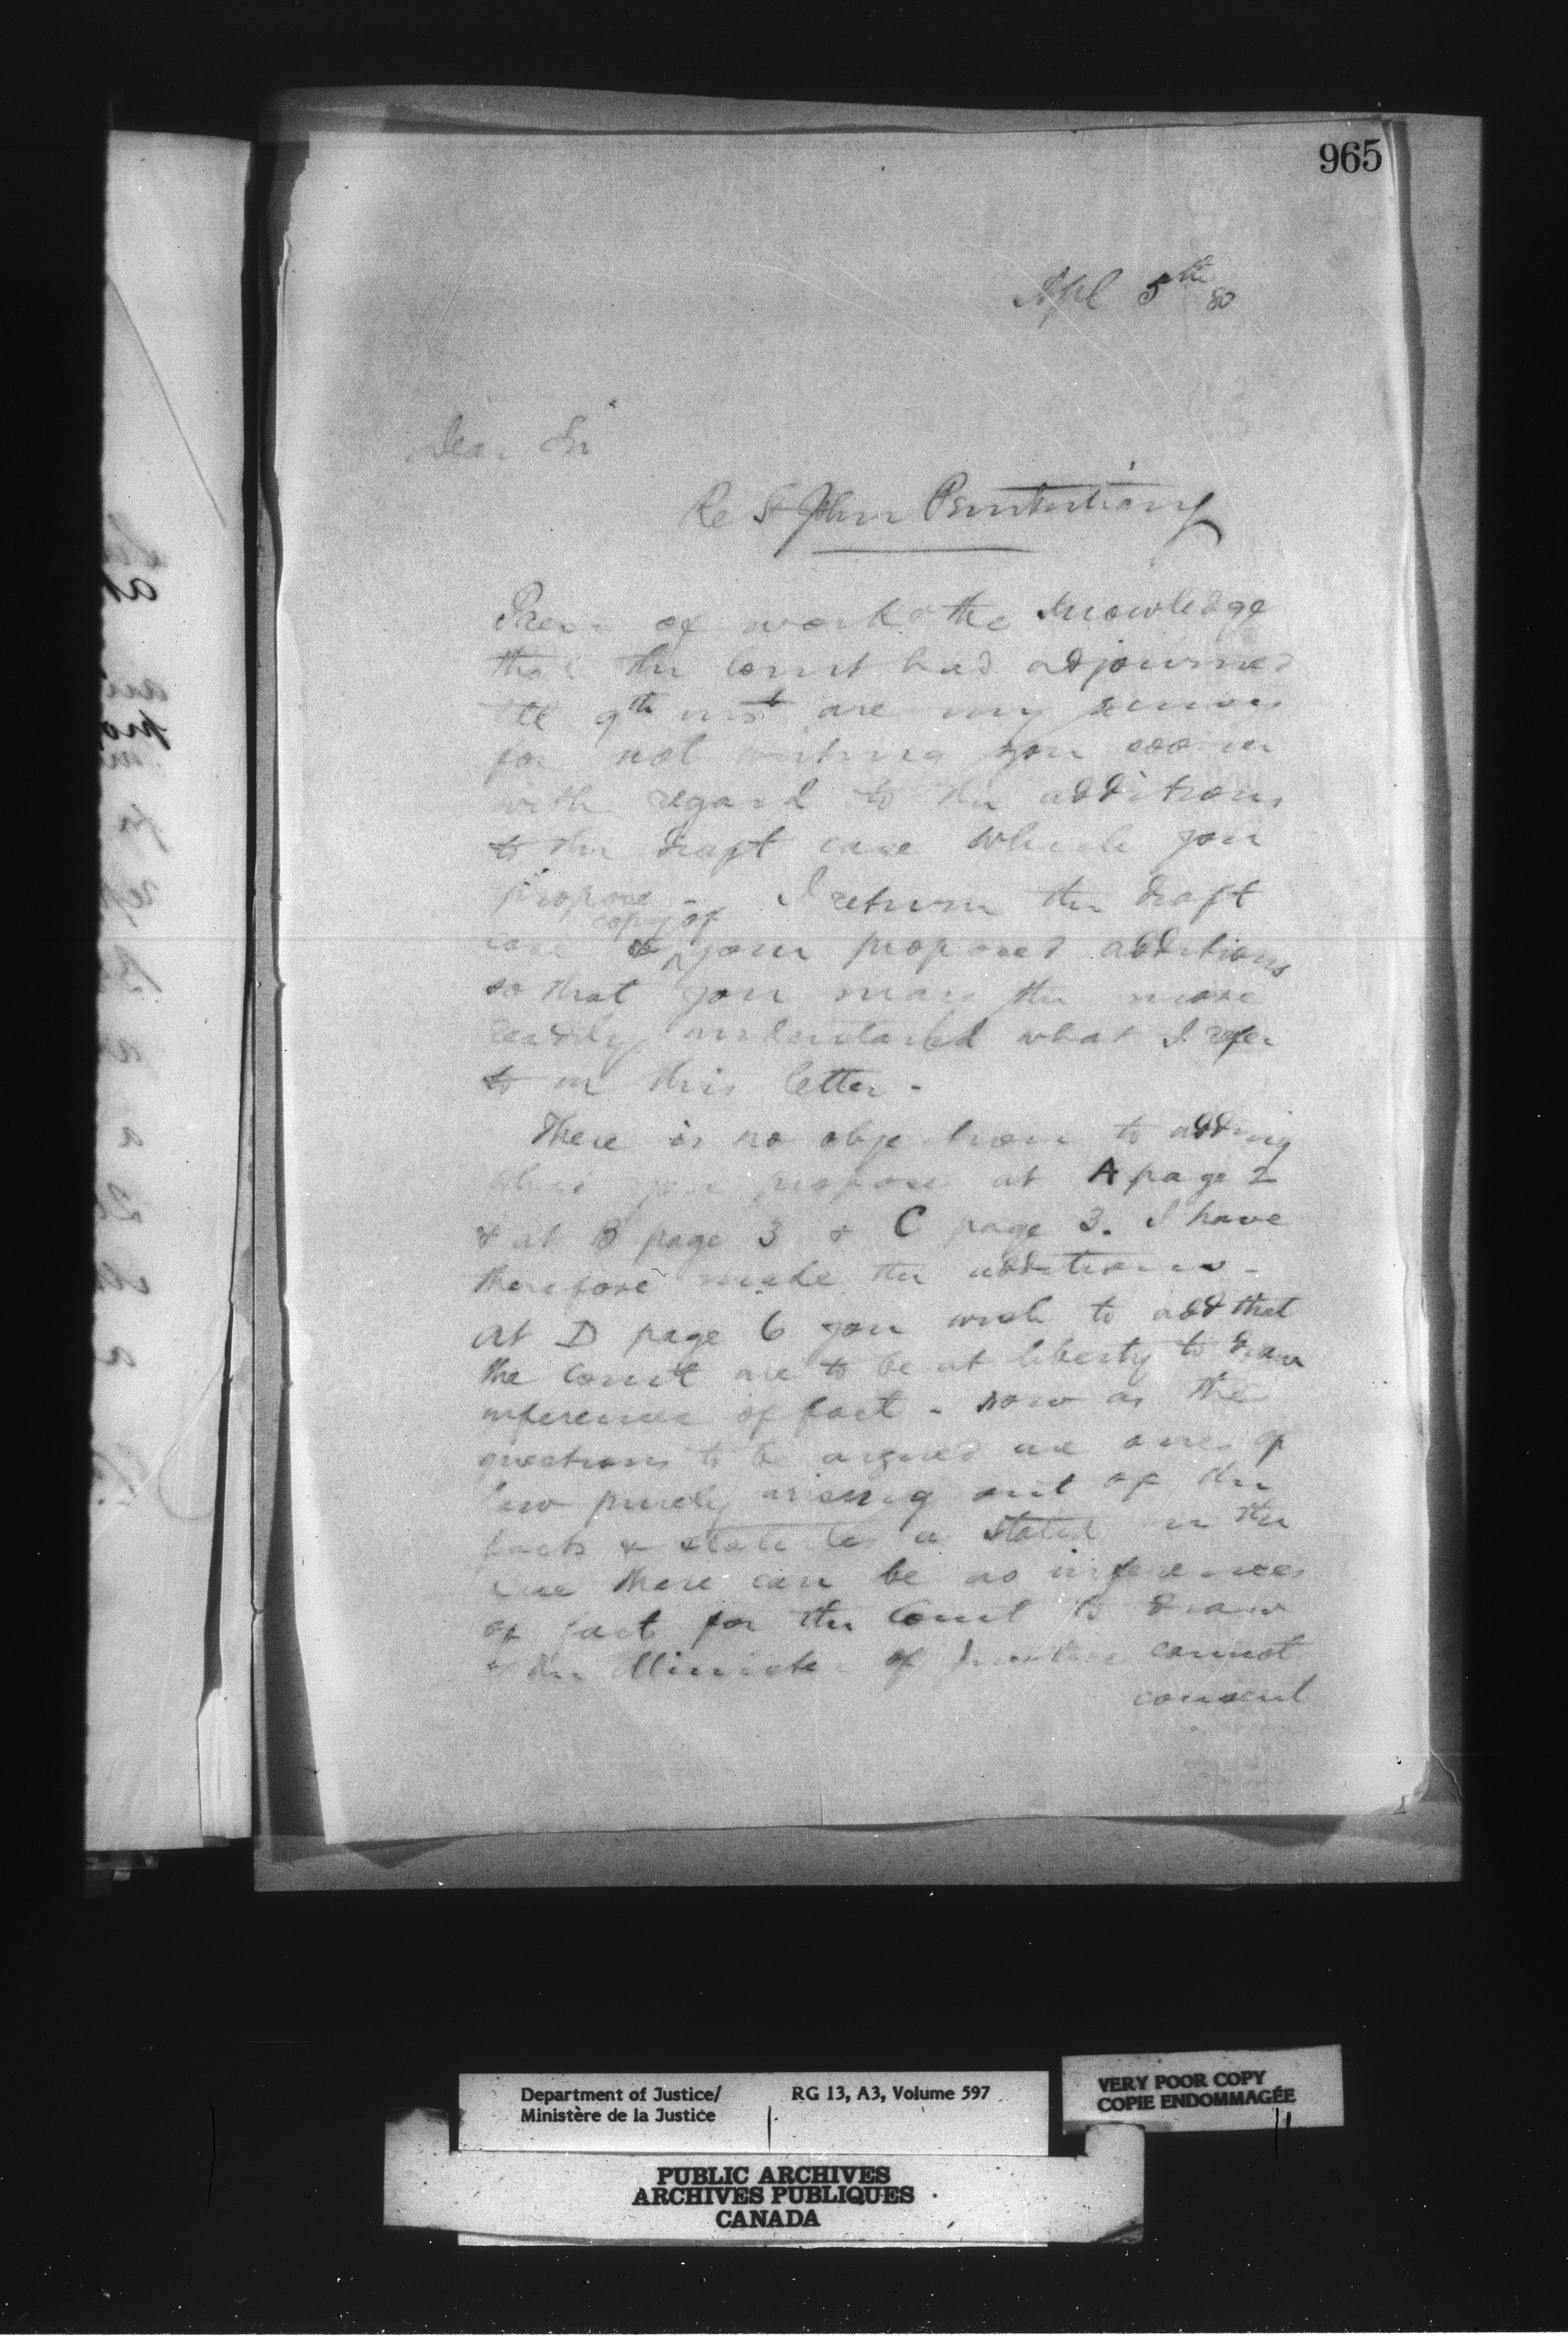 965
Apl 5th 80
Dear Sir
Re St John Penitentiary
Press of work & the knowledge
that the Court had adjourned
till 9th inst are my reasons
for not writing you sooner
with regard to the additions
to the draft case which you
propose - I return the draft
case & copy of your proposed additions
so that you may the more
readily understand what I refer
to in this letter -
There is no objection to adding
what you propose at A page 2
& at B page 3 & C page 3. I have
therefore made the additions -
At D page 6 you wish to add that
the Court are to be at liberty to draw
inferences of fact - now as the
questions to be argued are ones of
law purely arising out of the
facts & statutes as stated in the
case there can be no inferences
of fact for the Court to draw
& the Minister of Justice cannot
consent
Department of Justice/
Ministère de la Justice
RG 13, A3, Volume 597
VERY POOR COPY
COPIE ENDOMMAGÉE
PUBLIC ARCHIVES
ARCHIVES PUBLIQUES
CANADA